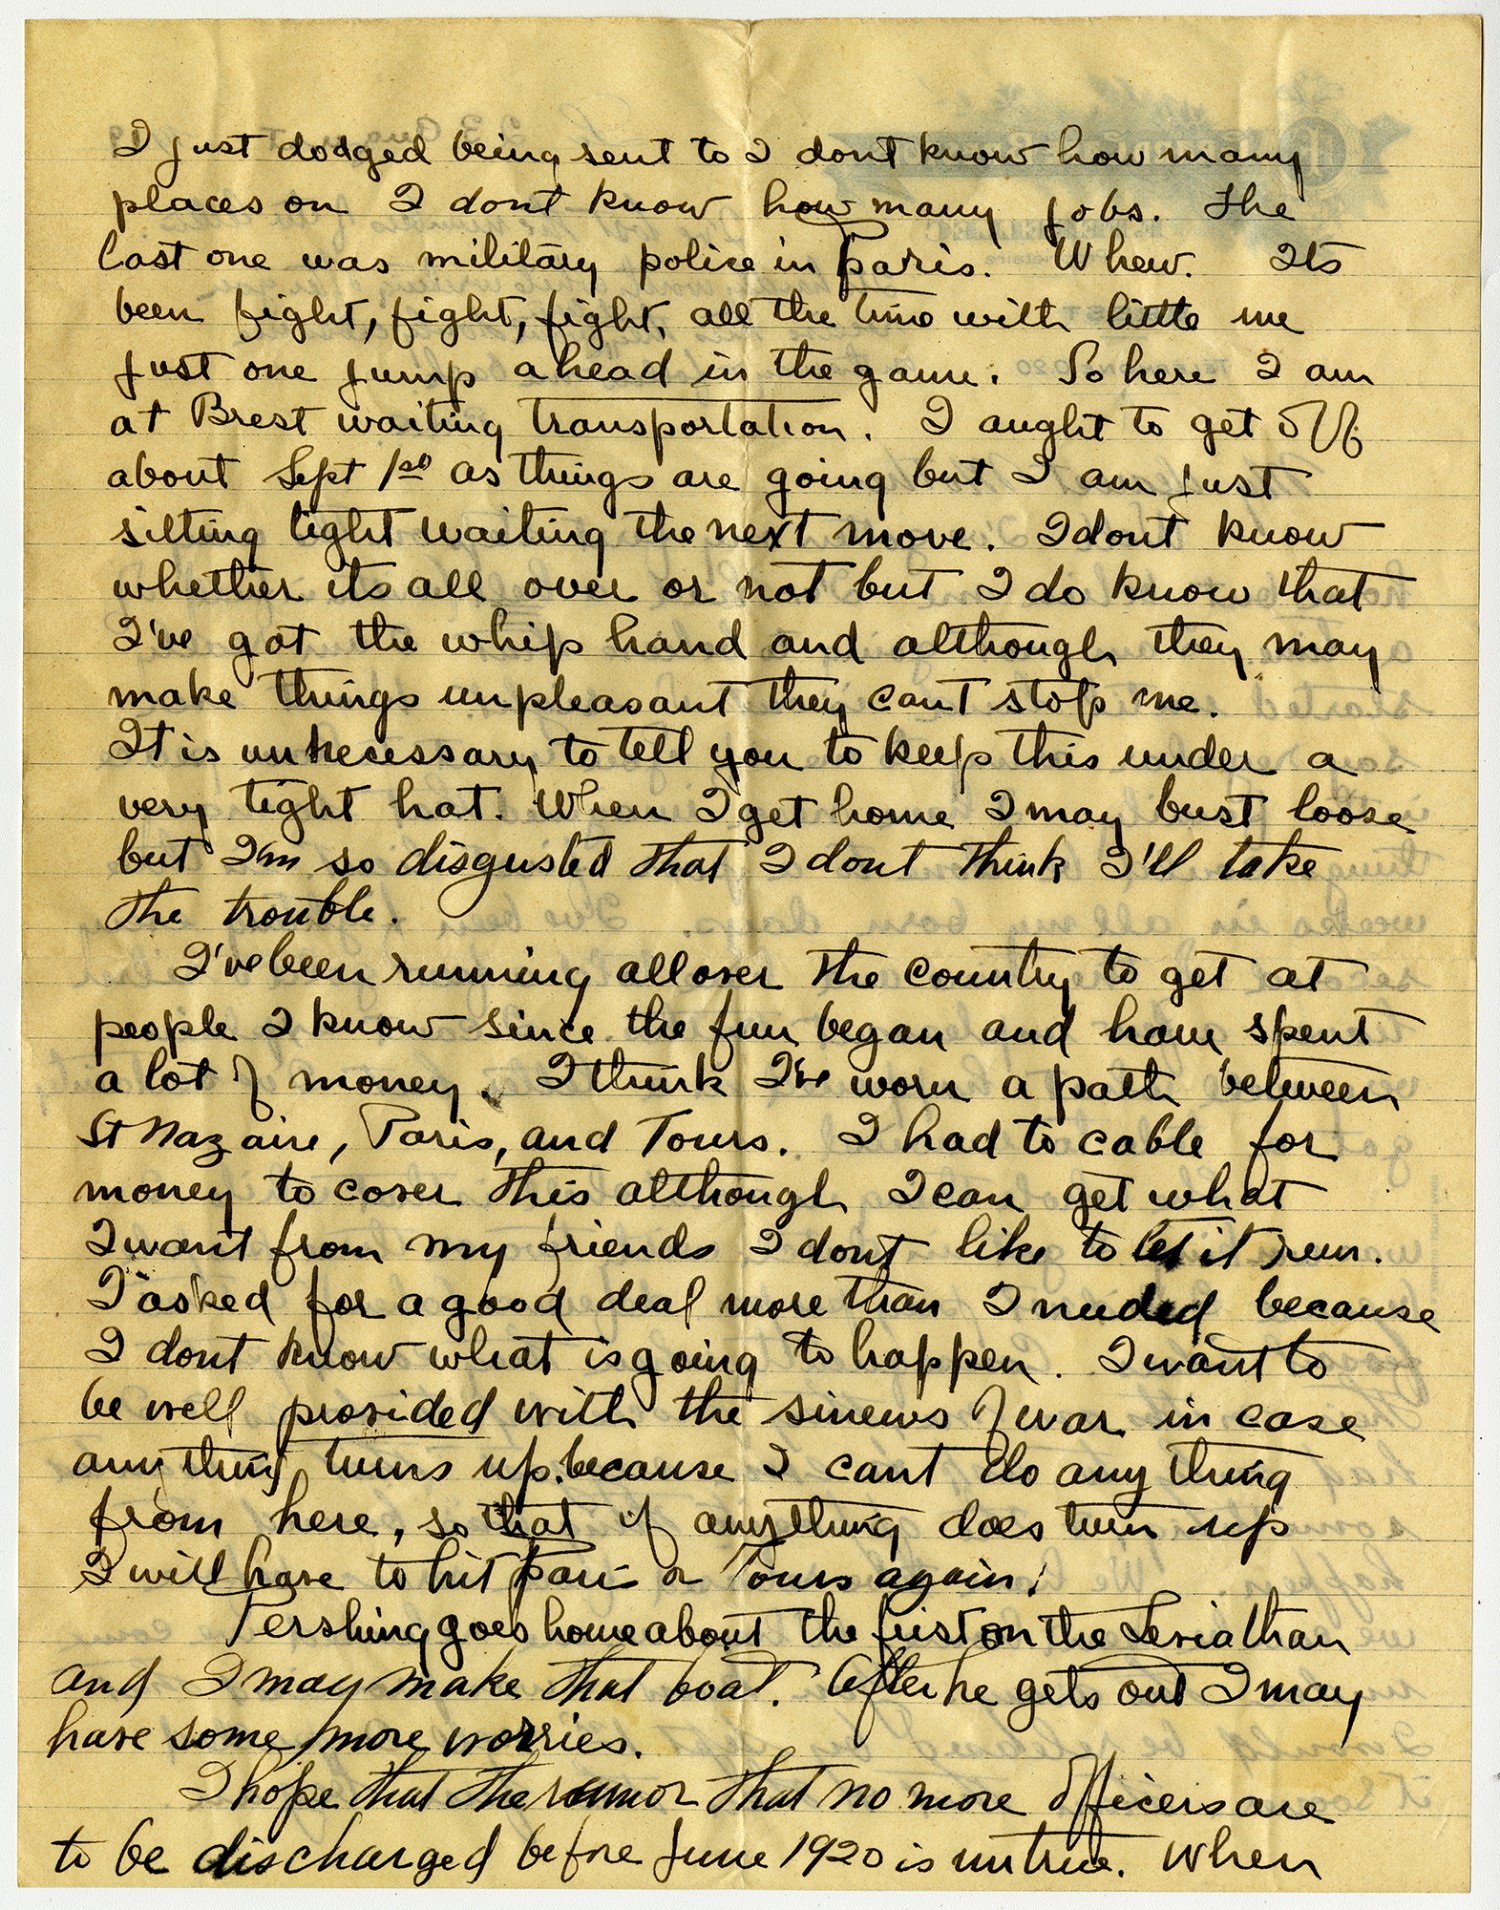 I just dodged being sent to I dont know how many
places on I dont know how many jobs. The
last one was military police in Paris. Whew. Its
been fight, fight, fight, all the time with little me
just one jump ahead in the game. So here I am
at Brest waiting transportation. I aught to get off
about Sept 1st as things are going but I am just
sitting tight waiting the next move. I dont know
whether its all over or not but I do know that
I've got the whip hand and although they may
make things unpleasant they cant stop me.
It is unnecessary to tell you to keep this under a
very tight hat. When I get home I may bust loose
but I'm so disgusted that I dont think I'll take
the trouble.
I've been running all over the country to get at
people I know since the fun began and have spent
a lot of money. I think I've worn a path between
St Nazaire, Paris, and Tours. I had to cable for
money to cover this although I can get what
I want from my friends I dont like to let it run.
I asked for a good deal more than I needed because
I dont know what is going to happen. I want to
be well provided with the sinews of war in case
anything turns up. because I cant do any thing
from here, so that if anything does turn up
I will have to hit Paris or Tours again.
Pershing goes home about the first on the Leviathan
and I may make that boat. After he gets out I may
have some more worries.
I hope that the rumor that no more officers are
to be discharged before June 1920 is untrue. When